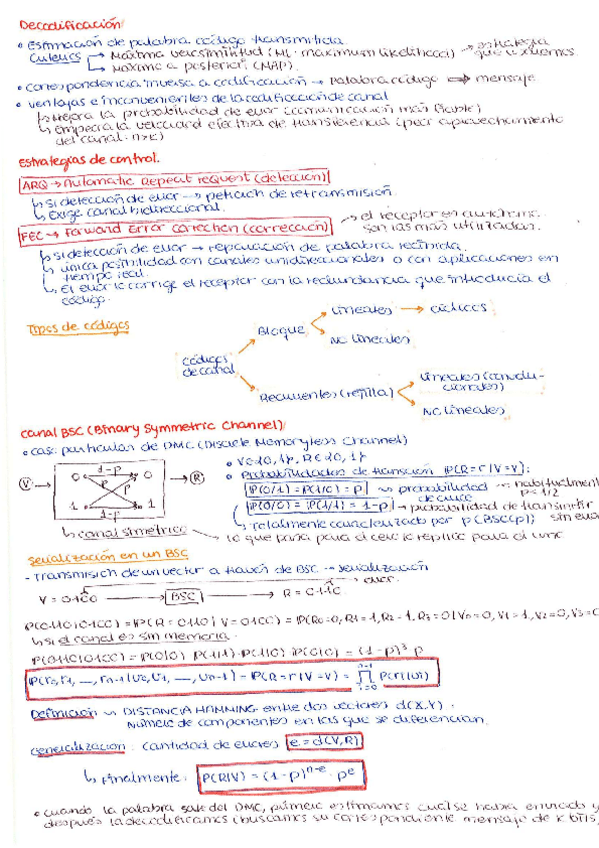 Decodificación:
• Estimación de palabra código transmitida
Criterios → Máxima verosimilitud (ML: maximum likelihood) → estrategia que usaremos
→ Máximo a posteriori (MAP).
• correspondencia inversa a codificación → palabra código ⟹ mensaje
• ventajas e inconvenientes de la codificación de canal
↳ Mejora la probabilidad de error (comunicación más fiable)
↳ empeora la velocidad efectiva de transferencia (peor aprovechamiento
del canal: n>k)
Estrategias de control.
ARQ → Automatic Repeat reQuest (detección)
↳ si detección de error → petición de retransmisión
↳ Exige canal bidireccional.
FEC → Forward Error Correction (corrección) → el receptor es autónomo.
son las más utilizadas.
↳ si detección de error → reparación de palabra recibida
↳ única posibilidad con canales unidireccionales o con aplicaciones en
tiempo real.
↳ El error lo corrige el receptor con la redundancia que introducía el
código.
Tipos de códigos
Códigos de canal
Bloque
Lineales → cíclicos
No lineales
Recurrentes (rejilla)
Lineales (convolucionales)
No lineales
Canal BSC (Binary Symmetric Channel)
• caso particular de DMC (Discrete Memoryless Channel)
V 0 1-p 0 R
p p
1 1-p 1
↳ canal simétrico → lo que pasa para el cero lo replico para el uno
• V∈{0,1}, R∈{0,1}
• Probabilidades de transición P(R=r|V=v):
P(0/1)=P(1/0)=p → probabilidad de cruce → habitualmente p<1/2
P(0/0)=P(1/1)=1-p → probabilidad de transmitir sin error
↳ totalmente caracterizado por p (BSC(p))
Serialización en un BSC
- Transmisión de un vector a través de BSC → serialización
error.
V = 0100 → BSC → R = 0110
P(0110|0100) = P(R=0110|V=0100) = P(R₀=0, R₁=1, R₂=1, R₃=0|V₀=0, V₁=1, V₂=0, V₃=0
↳ si el canal es sin memoria.
P(0110|0100) = P(0|0) P(1|1) P(1|0) P(0|0) = (1-p)³ p
P(r₀,r₁, ..., rₙ₋₁|v₀,v₁, ..., vₙ₋₁) = P(R=r|V=v) = ∏ᵢ₌₀ⁿ⁻¹ P(rᵢ|vᵢ)
Definición → DISTANCIA HAMMING entre dos vectores d(X,Y):
número de componentes en las que se diferencian.
Generalización: cantidad de errores e = d(V,R)
↳ Finalmente: P(R|V) = (1-p)ⁿ⁻ᵉ · pᵉ
• cuando la palabra sale del DMC, primero estimamos cuál se había enviado y
después la decodificamos (buscamos su correspondiente mensaje de k bits)